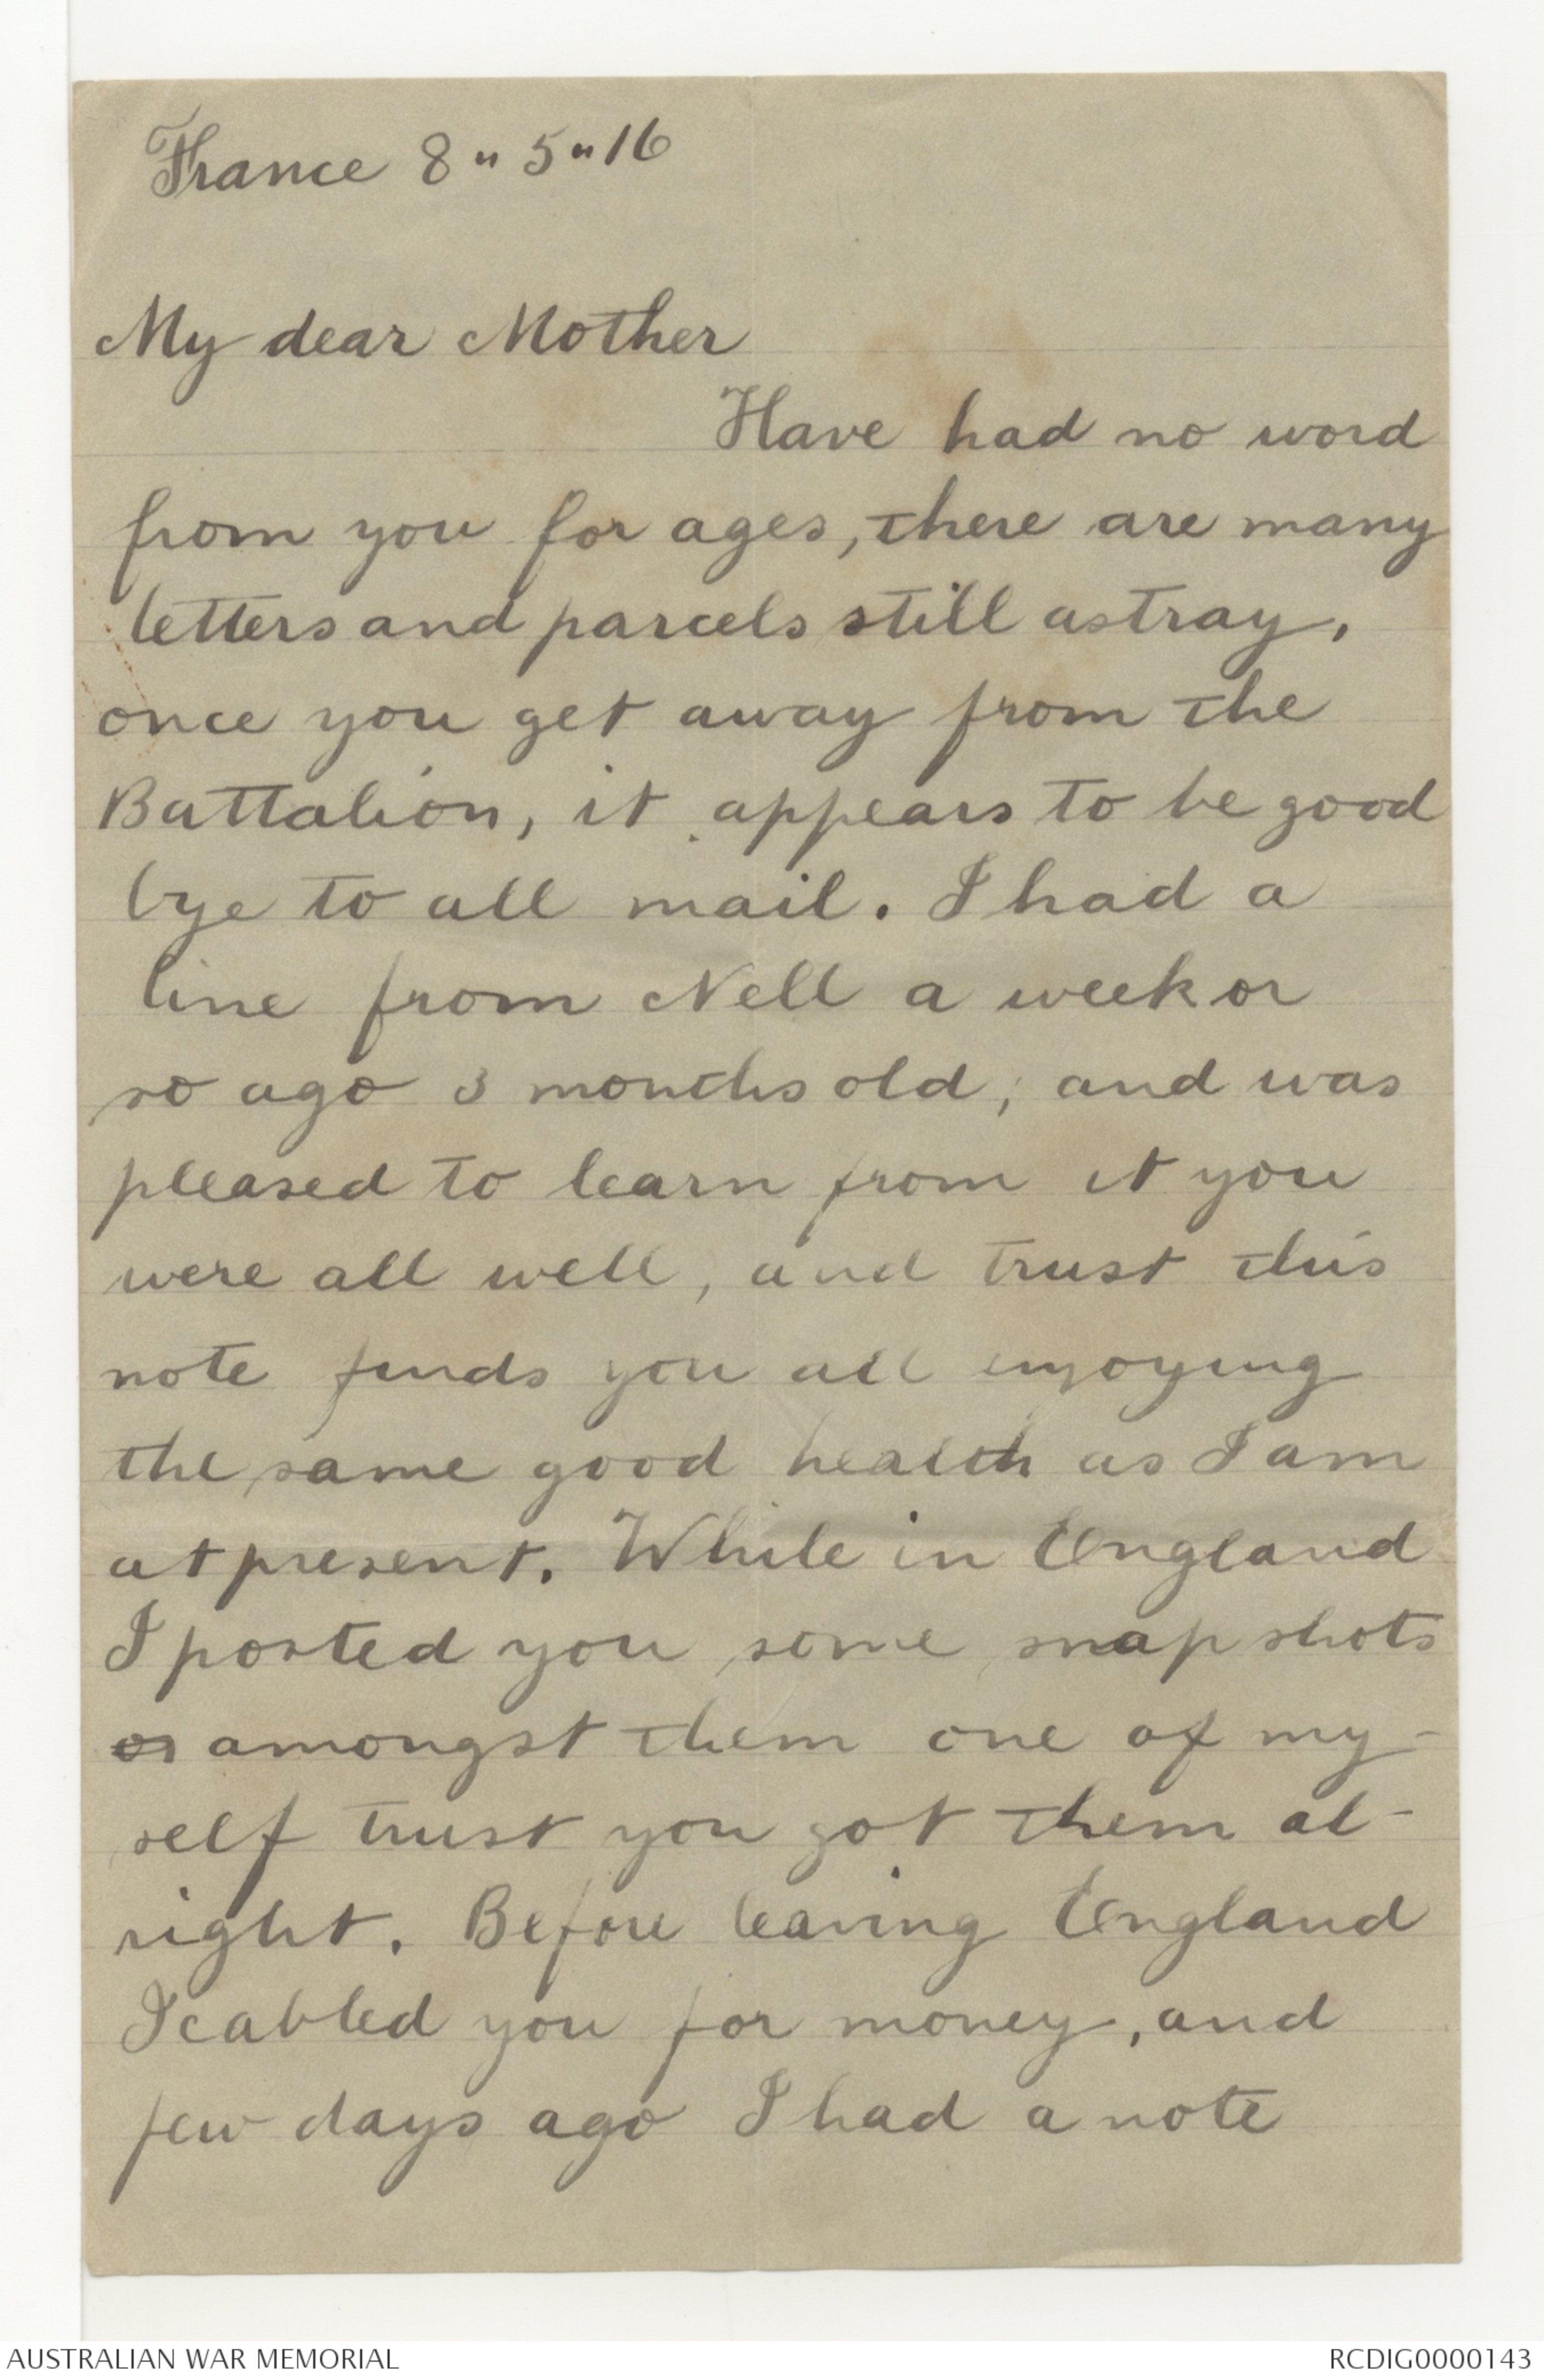 France 8 " 5 " 16
My dear Mother
Have had no word
from you for ages, there are many
letters and parcels still astray,
once you get away from the
Battalion, it appears to be good
bye to all mail. I had a
line from Nell a week or
so ago 3 months old, and was
pleased to learn from it you
were all well, and trust this
note finds you all enjoying
the same good health as I am
at present. While in England
I posted you some snap shots
or amongst them one of my-
self trust you got them al-
right. Before leaving England
I cabled you for money, and
few days ago I had a note
AUSTRALIAN WAR MEMORIAL
RCDIG0000143